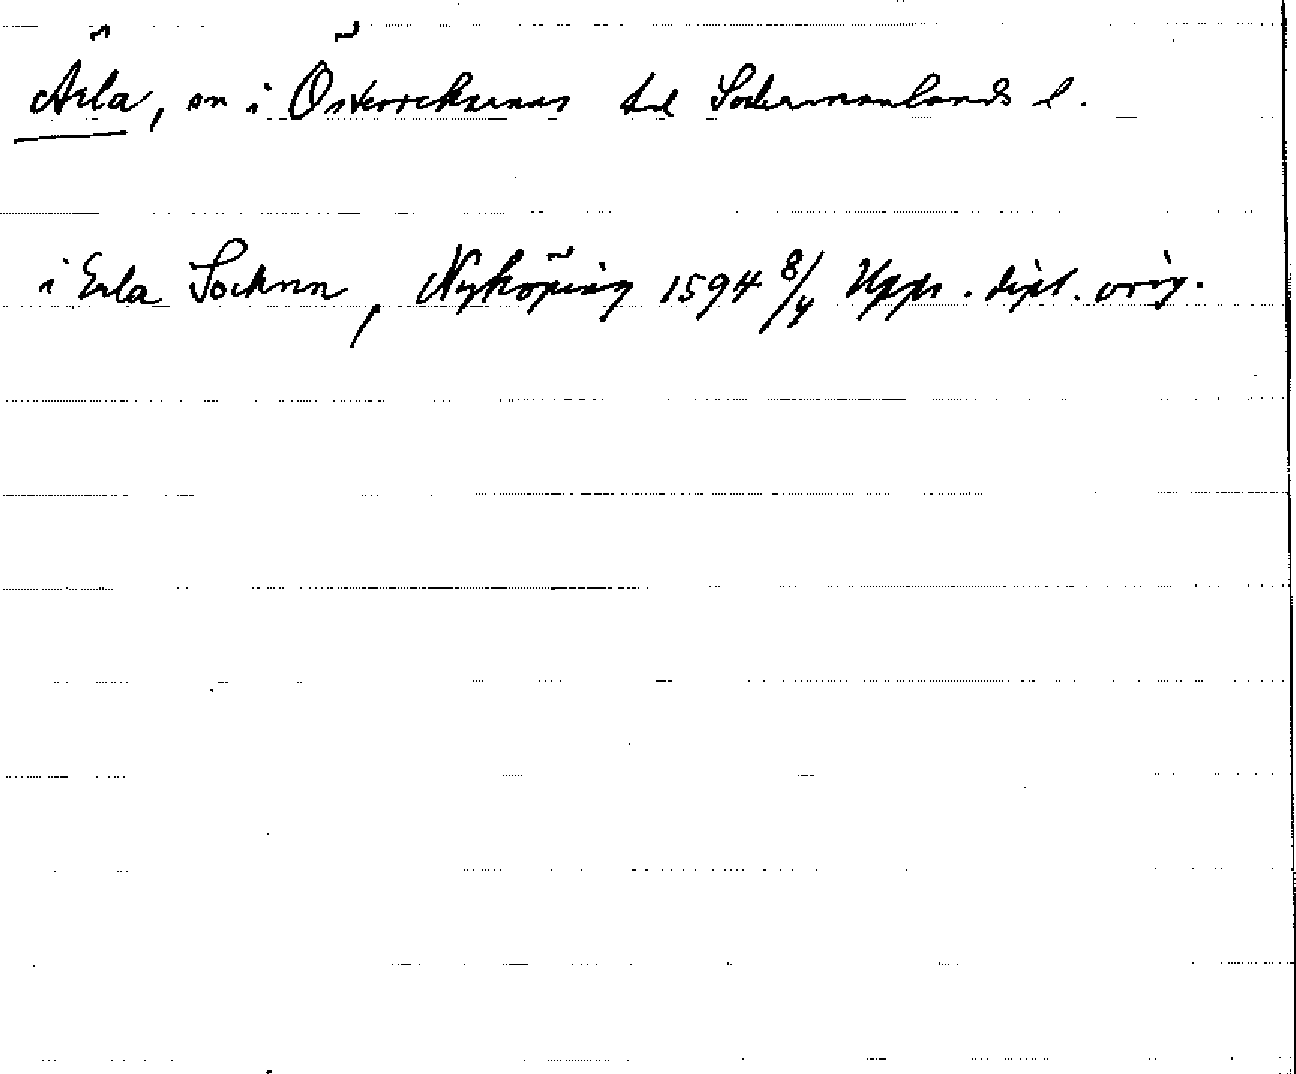 Ärla, sn i Österrekarnes hd Södermanlands l.
i Erla Socknn, Nyköping 1594 8/4 Upps. dipl. orig.